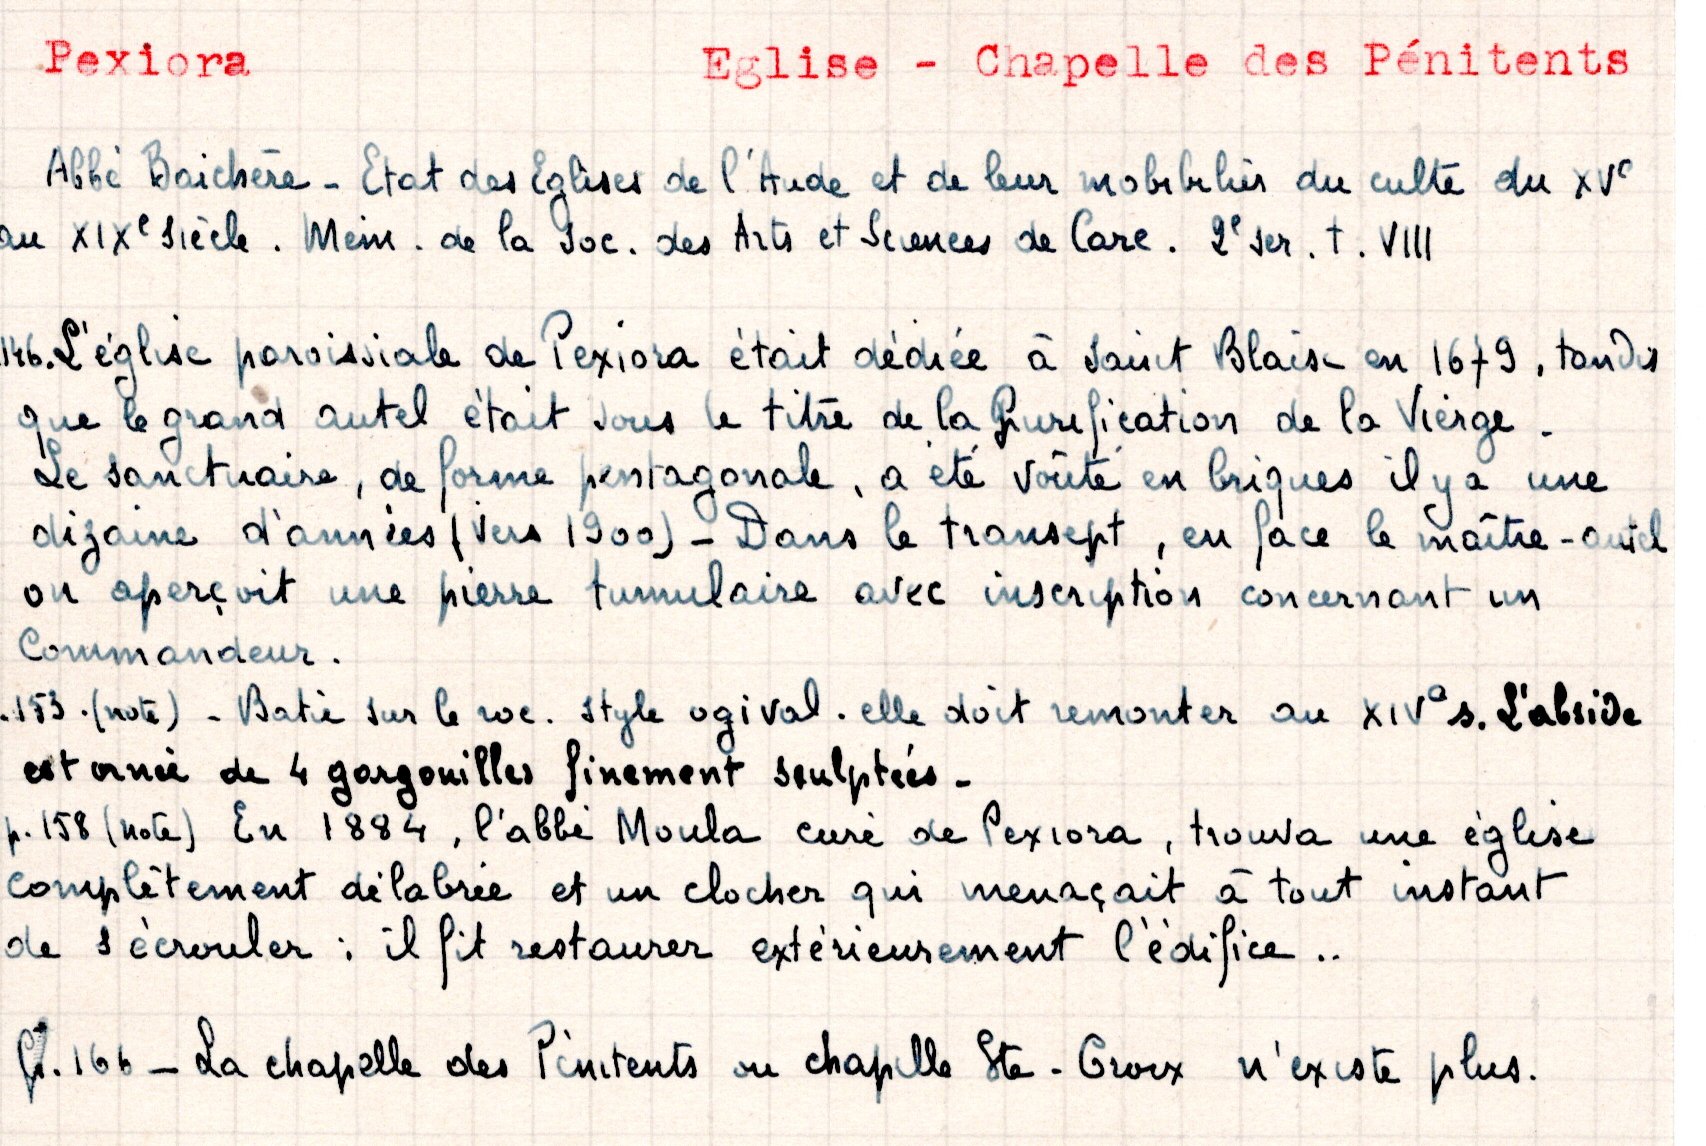 Pexiora Eglise - Chapelle des Pénitents
Abbé Baichère - Etat des Eglises de l'Aude et de leur mobilier du culte du XVe
au XIXe siècle. Mém. de la Soc. des Arts et Sciences de Carc. 2e ser. t. VIII
146. L'église paroissiale de Pexiora était dédiée à saint Blaise en 1679, tandis
que le grand autel était sous le titre de la Purification de la Vierge -
Le sanctuaire, de forme pentagonale, a été voûté en briques il y a une
dizaine d'années (vers 1900) - Dans le transept, en face le maître-autel
on aperçoit une pierre tumulaire avec inscription concernant un
Commandeur.
.153. (note) - Batie sur le roc. style ogival. elle doit remonter au XIVe s. L'abside
est ornée de 4 gargouilles finement sculptées -
p. 158 (note) En 1884, l'abbé Moula curé de Pexiora, trouva une église
complètement délabrée et un clocher qui menaçait à tout instant
de s'écrouler ; il fit restaurer extérieurement l'édifice ..
P. 166 - La chapelle des Pénitents ou chapelle Ste-Croix n'existe plus.